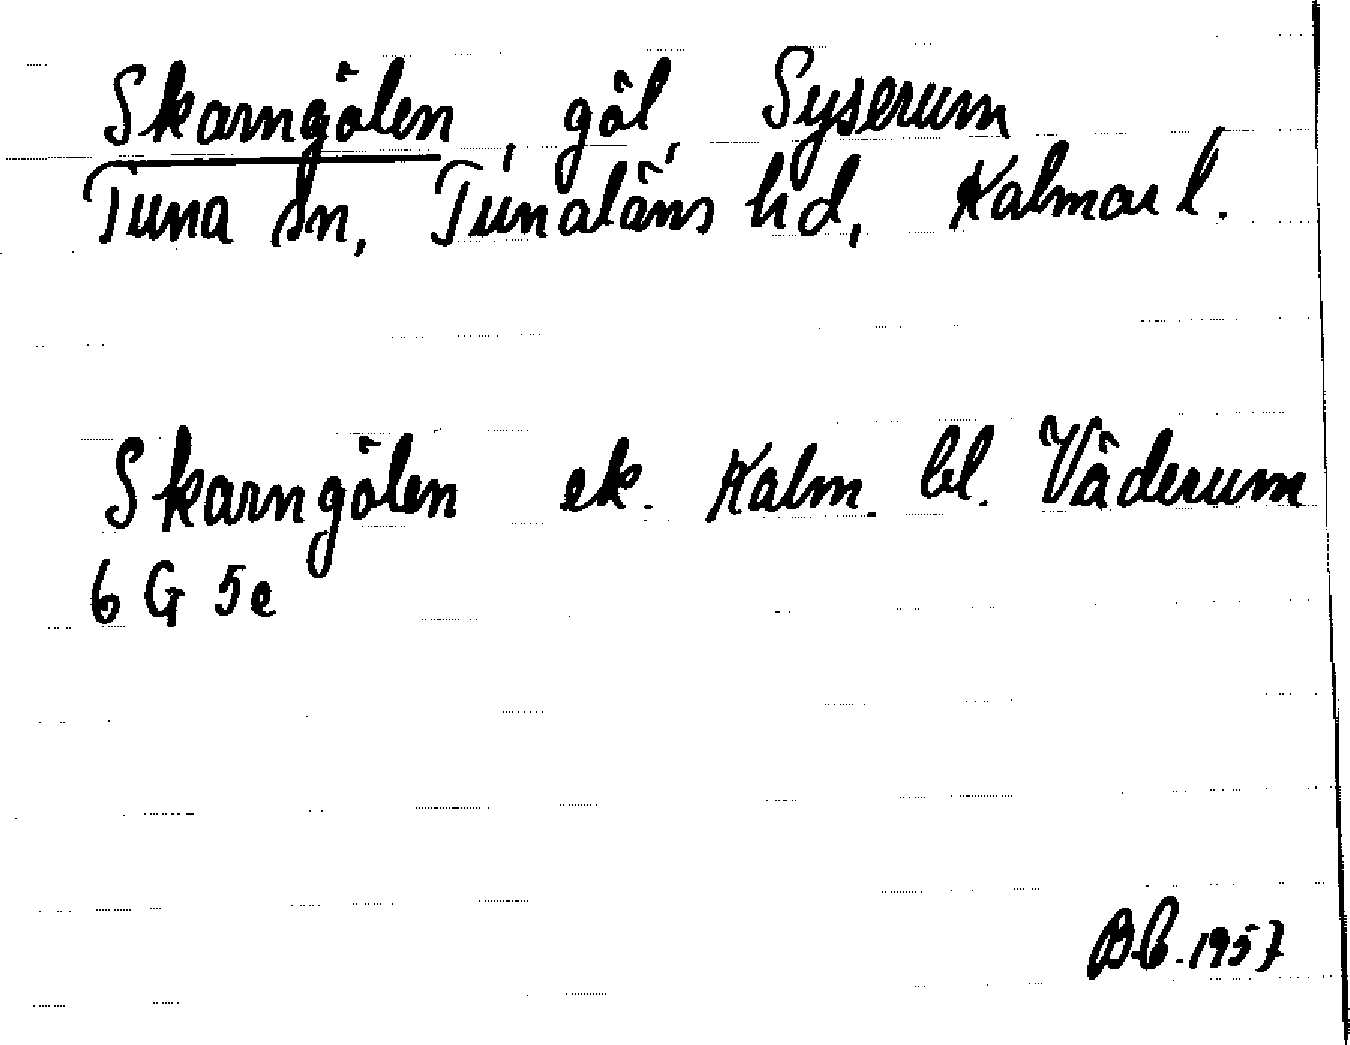 Skarngölen, göl, Syserum
Tuna sn, Tunaläns hd, Kalmar l.
Skarngölen ek. Kalm. bl. Väderum
6 G 5e
B.C. 1957